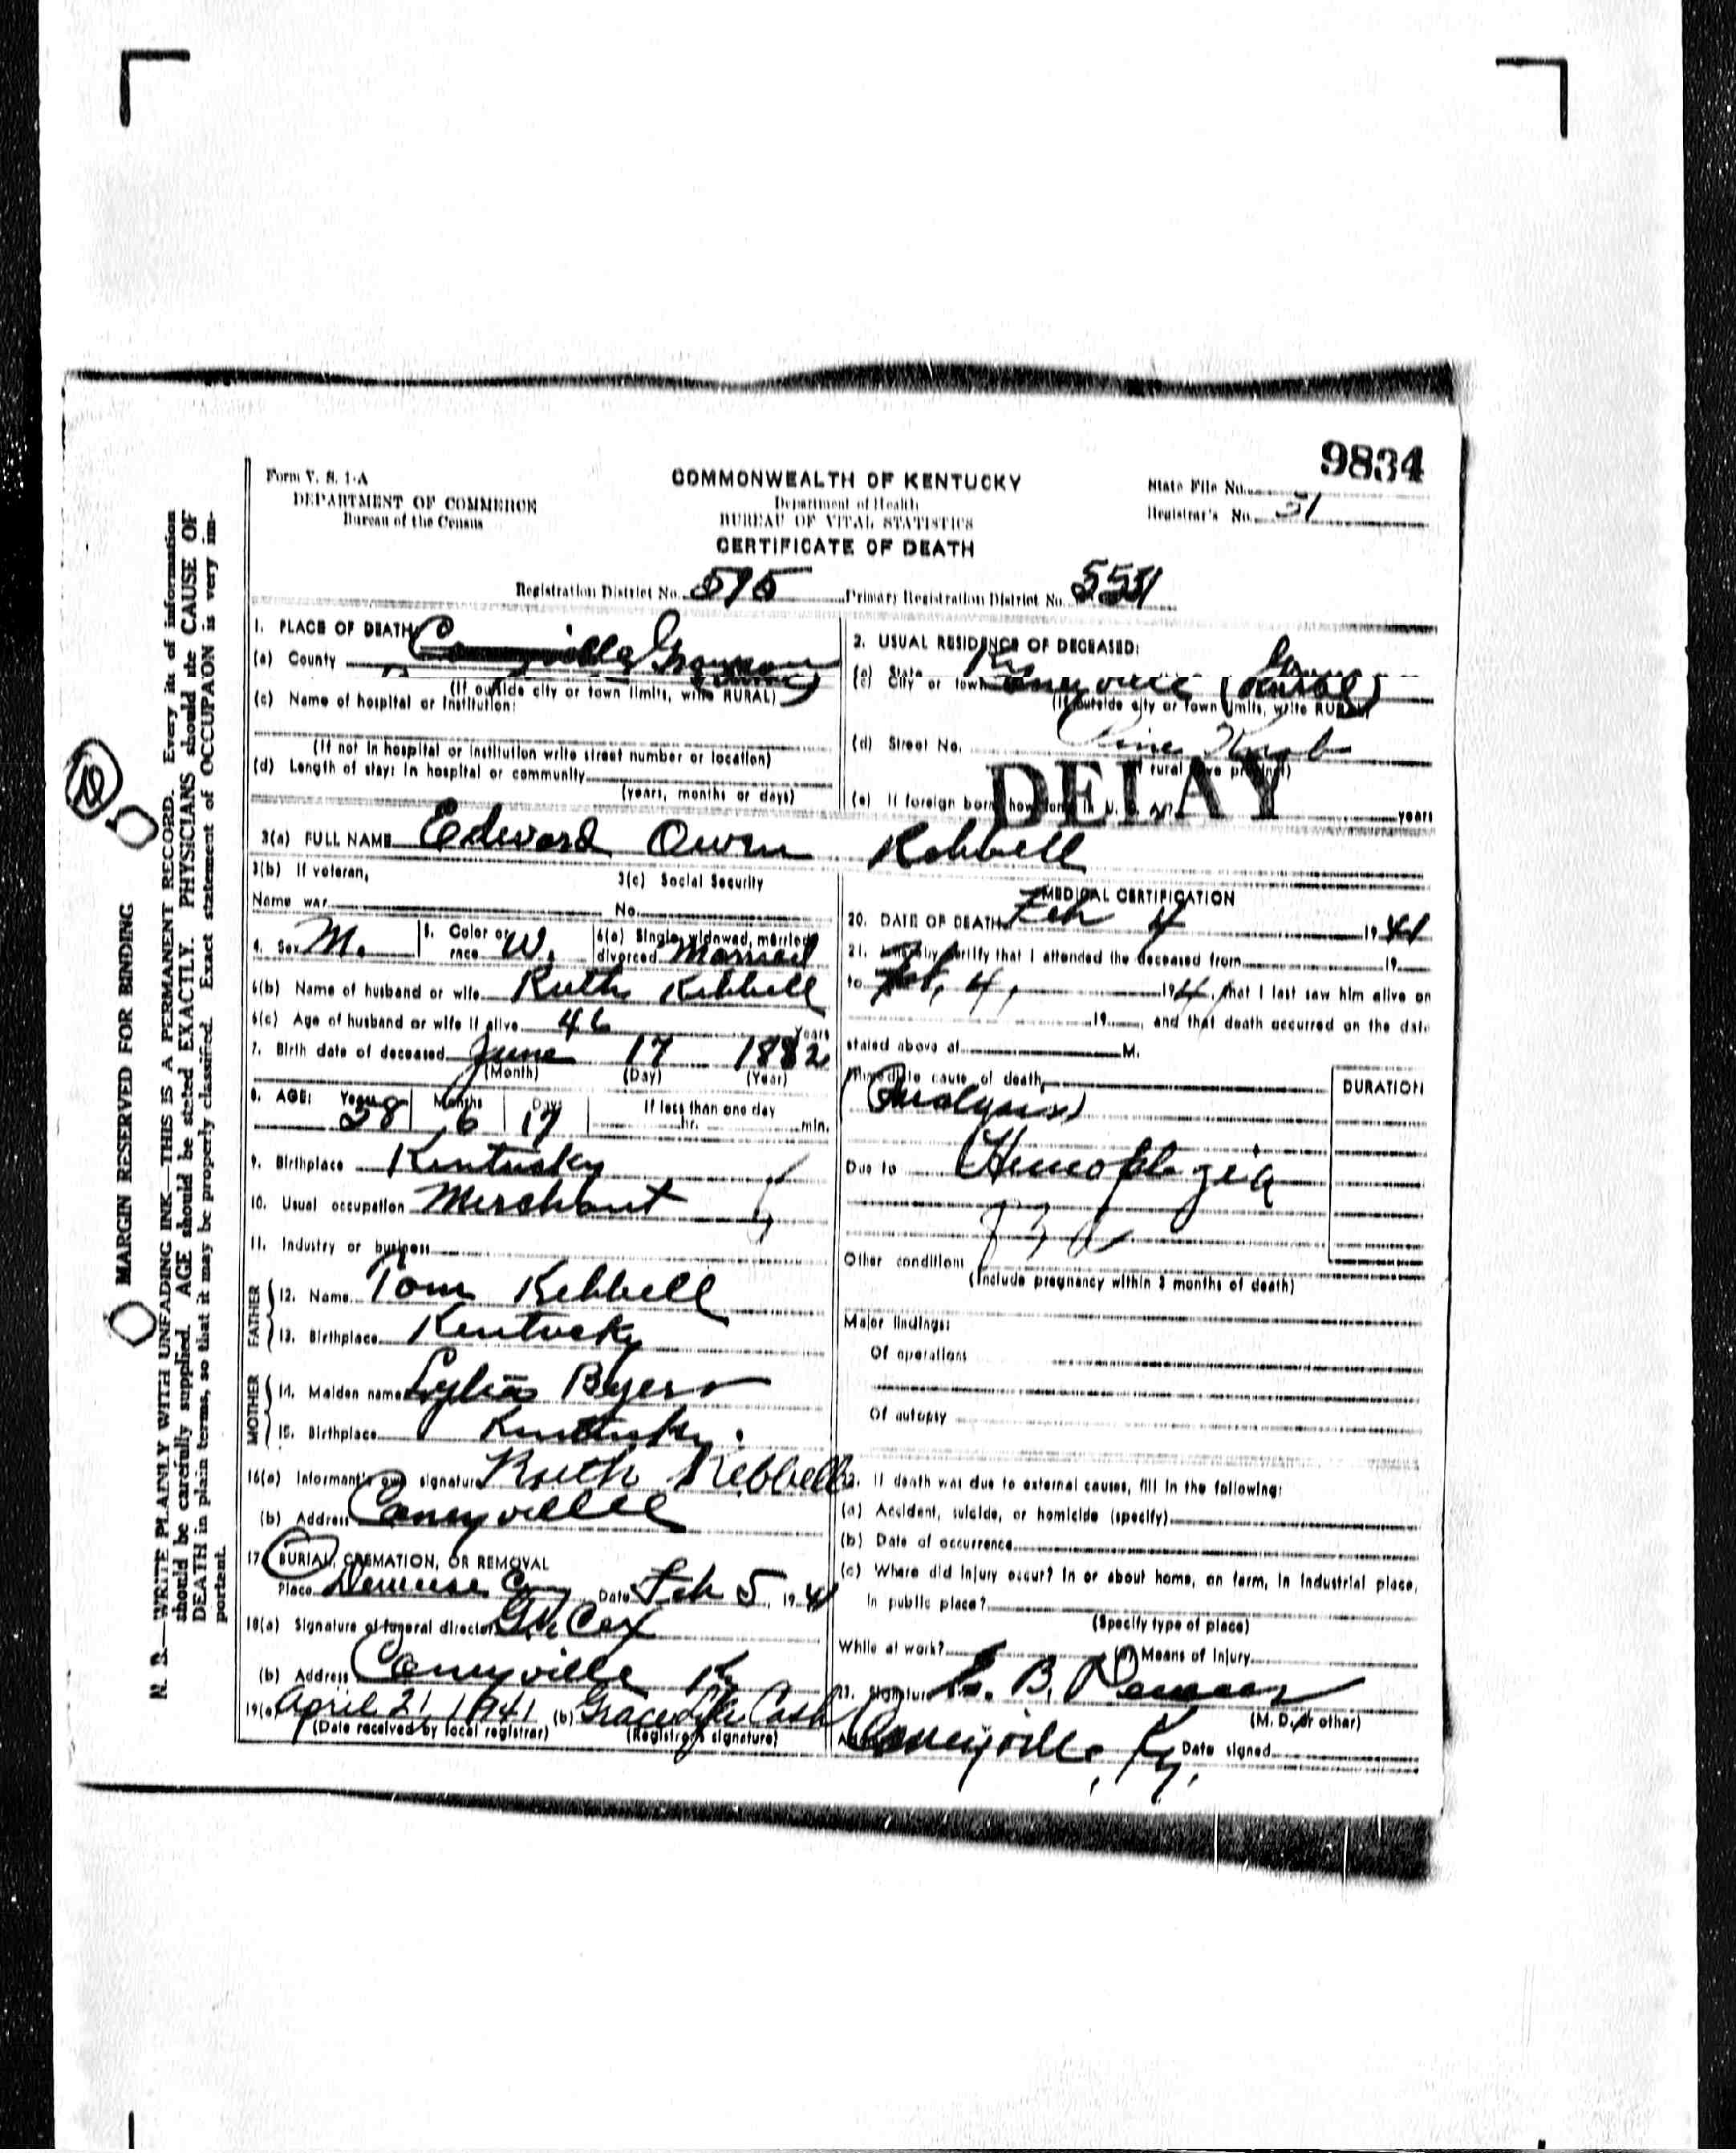 9834
Form V. S. 1-A
DEPARTMENT OF COMMERCE
Bureau of the Census
COMMONWEALTH OF KENTUCKY
Department of Health
BUREAU OF VITAL STATISTICS
CERTIFICATE OF DEATH
State File No.
Registrar's No. 31
Registration District No. 515 Primary Registration District No. 5531
1. PLACE OF DEATH
(a) County Grayson
(If outside city or town limits, write RURAL)
(c) Name of hospital or institution:
(If not in hospital or institution write street number or location)
(d) Length of stay: In hospital or community
(years, months or days)
2. USUAL RESIDENCE OF DECEASED:
(a) State Ky
(c) City or town Caneyville (Rural)
(If outside city or town limits, write RURAL)
(d) Street No. Pine Knob
DELAY
(e) If foreign born, how long in U. S. A. years
3(a) FULL NAME Edward Owen Kebbell
3(b) If veteran,
Name war
3(c) Social Security
No.
4. Sex M. 5. Color or race W. 6(a) Single, widowed, married, divorced Married
6(b) Name of husband or wife Ruth Kebbell
6(c) Age of husband or wife if alive 46 Years
7. Birth date of deceased June 17 1882
(Month) (Day) (Year)
8. AGE: Years 58 Months 6 Days 17 If less than one day
hr. min.
9. Birthplace Kentucky
10. Usual occupation Merchant
11. Industry or business
FATHER
12. Name Tom Kebbell
13. Birthplace Kentucky
MOTHER
14. Maiden name Byers
15. Birthplace Kentucky.
16(a) Informant's own signature Ruth Kebbell
(b) Address Caneyville
17. BURIAL, CREMATION, OR REMOVAL
Place Date Feb 5, 1941
18(a) Signature of funeral director Cox
(b) Address Caneyville Ky
19(a) April 21, 1941 (b) Grace Cash
(Date received by local registrar) (Registrar's signature)
MEDICAL CERTIFICATION
20. DATE OF DEATH Feb 4 1941
21. I hereby certify that I attended the deceased from 19
to Feb, 4, 1941, that I last saw him alive on
19, and that death occurred on the date
stated above at M.
Immediate cause of death DURATION
Paralysis
Due to Hemoplegia
Other conditions
(Include pregnancy within 3 months of death)
Major findings:
Of operations
Of autopsy
22. If death was due to external causes, fill in the following:
(a) Accident, suicide, or homicide (specify)
(b) Date of occurrence
(c) Where did injury occur? In or about home, on farm, in industrial place,
in public place?
(Specify type of place)
While at work? (f) Means of Injury
23. Signature B.
(M. D. or other)
Address Caneyville, Ky. Date signed
MARGIN RESERVED FOR BINDING
N. B.—WRITE PLAINLY WITH UNFADING INK—THIS IS A PERMANENT RECORD. Every item of information
should be carefully supplied. AGE should be stated EXACTLY. PHYSICIANS should state CAUSE OF
DEATH in plain terms, so that it may be properly classified. Exact statement of OCCUPATION is very im-
portant.